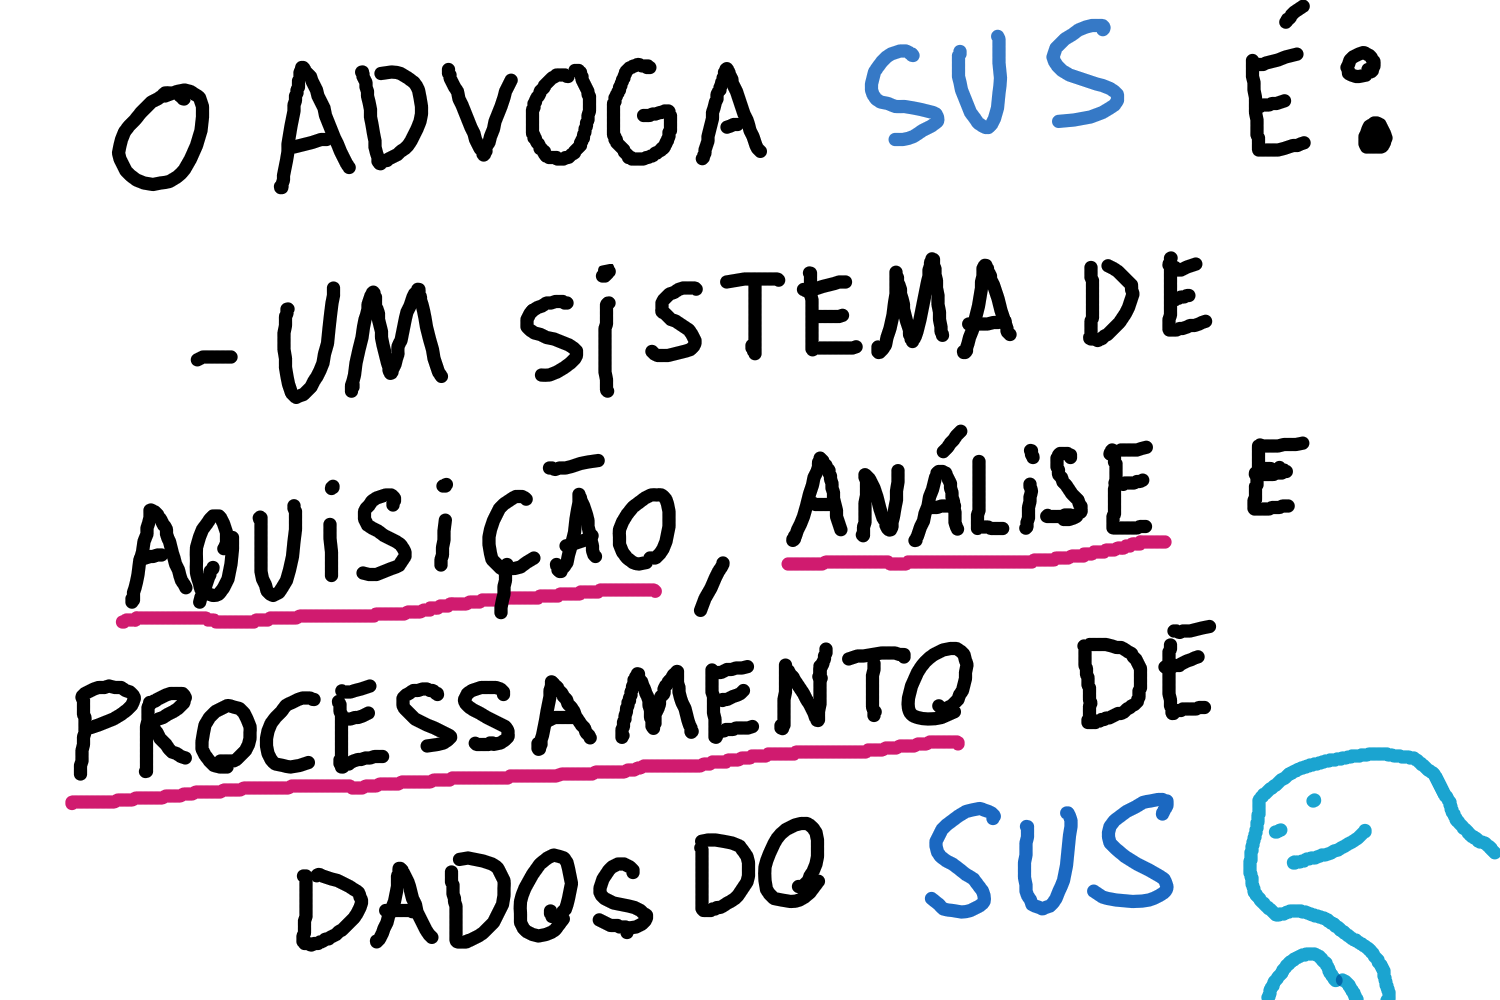 O ADVOGA SUS É:
- UM SISTEMA DE
AQUISIÇÃO, ANÁLISE E
PROCESSAMENTO DE
DADOS DO SUS